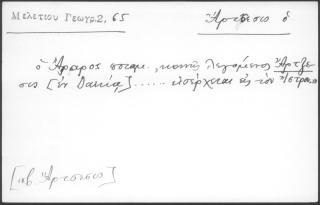 Μελετίου Γεωγρ. 2, 65
Ἄρτζεσις ὁ
ὁ Ἄραρος ποταμ., κοινῶς λεγόμενος Ἄρτζε
σις [ἐν Δακίᾳ] ..... εἰσέρχεται εἰς τὸν Ἴστρον
[πβ. Ἄρτσεσις]